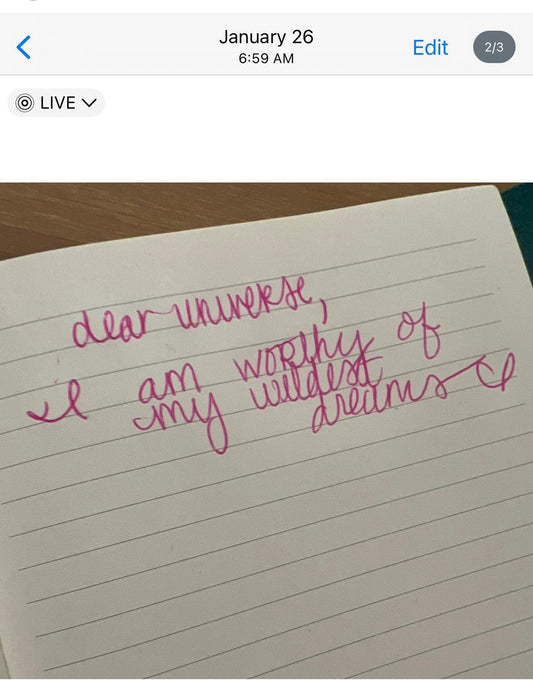 January 26
6:59 AM
Edit
2/3
LIVE
dear universe,
I am worthy of
my wildest
dreams